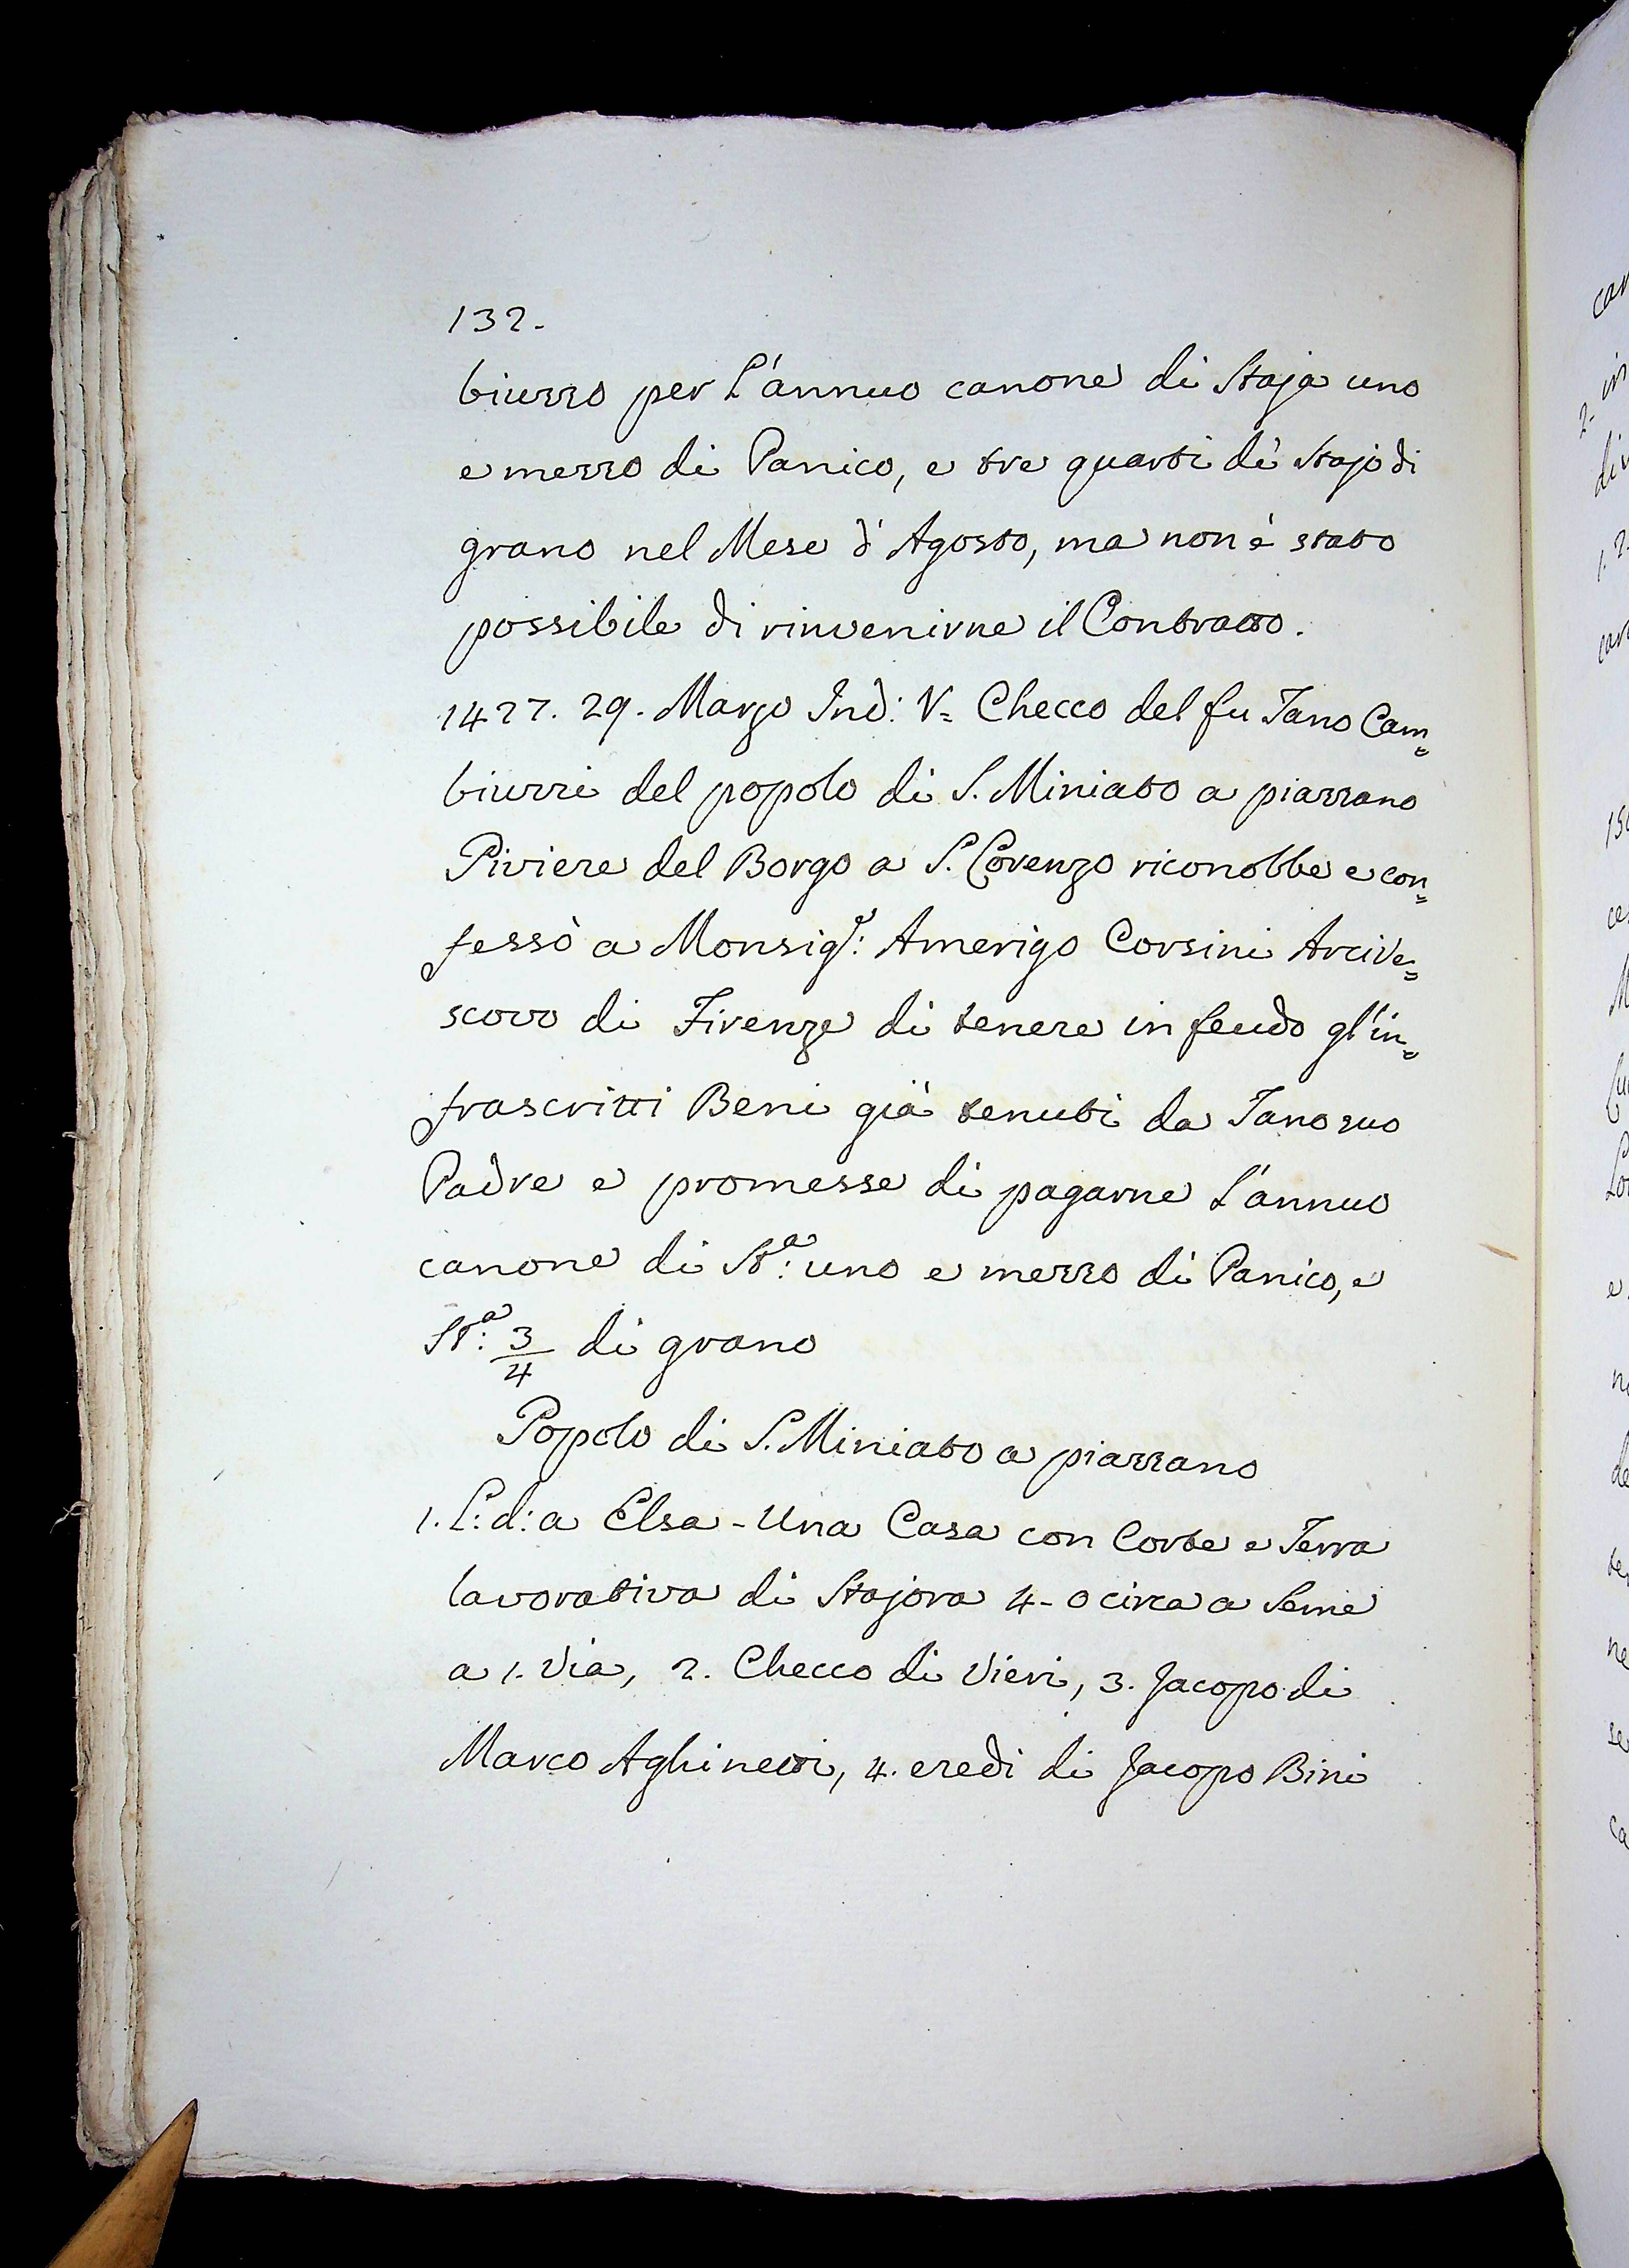 132.
biuzzo per L'annuo canone di Staja uno
e mezzo di Panico, e tre quarti di Stajo di
grano nel Mese d'Agosto, ma non è stato
possibile di rinvenirne il Contratto.
1427. 29. Marzo Ind: V= Checco del fu Tano Cam=
biuzzi del popolo di S. Miniato a piazzano
Piviere del Borgo a S. Lorenzo riconobbe e con=
fessò a Monsigr: Amerigo Corsini Arcive=
scovo di Firenze di tenere in feudo gl'in=
frascritti Beni già tenuti da Tano suo
Padre e promesse di pagarne L'annuo
canone di Sta: uno e mezzo di Panico, e
Sta: 3/4 di grano
Popolo di S. Miniato a piazzano
1. L: d: a Elsa - Una Casa con Corte e Terra
lavorativa di Stajora 4 - 0 circa a Seme
a 1. Via, 2. Checco di Vieri, 3. Jacopo di
Marco Aghinetti, 4. eredi di Jacopo Bini